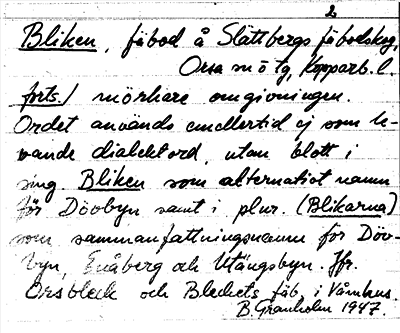 2
Bliken, fäbod å Slättbergs fäbodskog,
Orsa sn ö tg, Kopparb. l.
forts./ mörkare omgivningen.
Ordet används emellertid ej som le-
vande dialektord, utan blott i
sing. Bliken som alternativt namn
för Dövbyn samt i plur. (Blikarna)
som sammanfattningsnamn för Döv-
byn, Enåberg och Utängsbyn. Jfr.
Orsbleck och Bleckets fäb. i Våmhus.
B Granholm 1947.